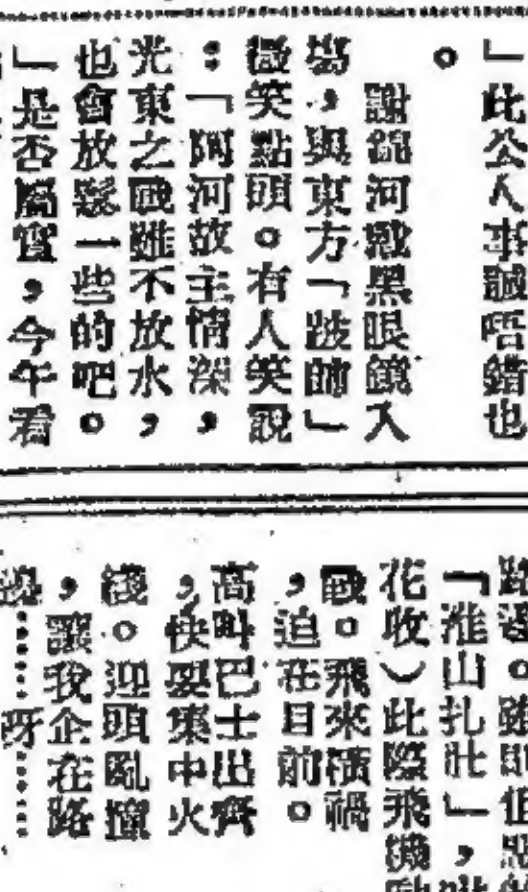 」此公人事誠唔錯也
。
謝錦河戴黑眼鏡入
塲,與東方「跛帥」
微笑點頭。有人笑說
:「阿河故主情深,
光東之戰雖不放水,
也會放鬆一些的吧。
」是否屬實,今午看
「淮山扎壯」,
花收)此際飛機
戰。飛來橫禍
,迫在目前。
高叫巴士出齊
,快要集中火
綫。迎頭亂撞
,讓我企在路
邊⋯⋯呀⋯⋯